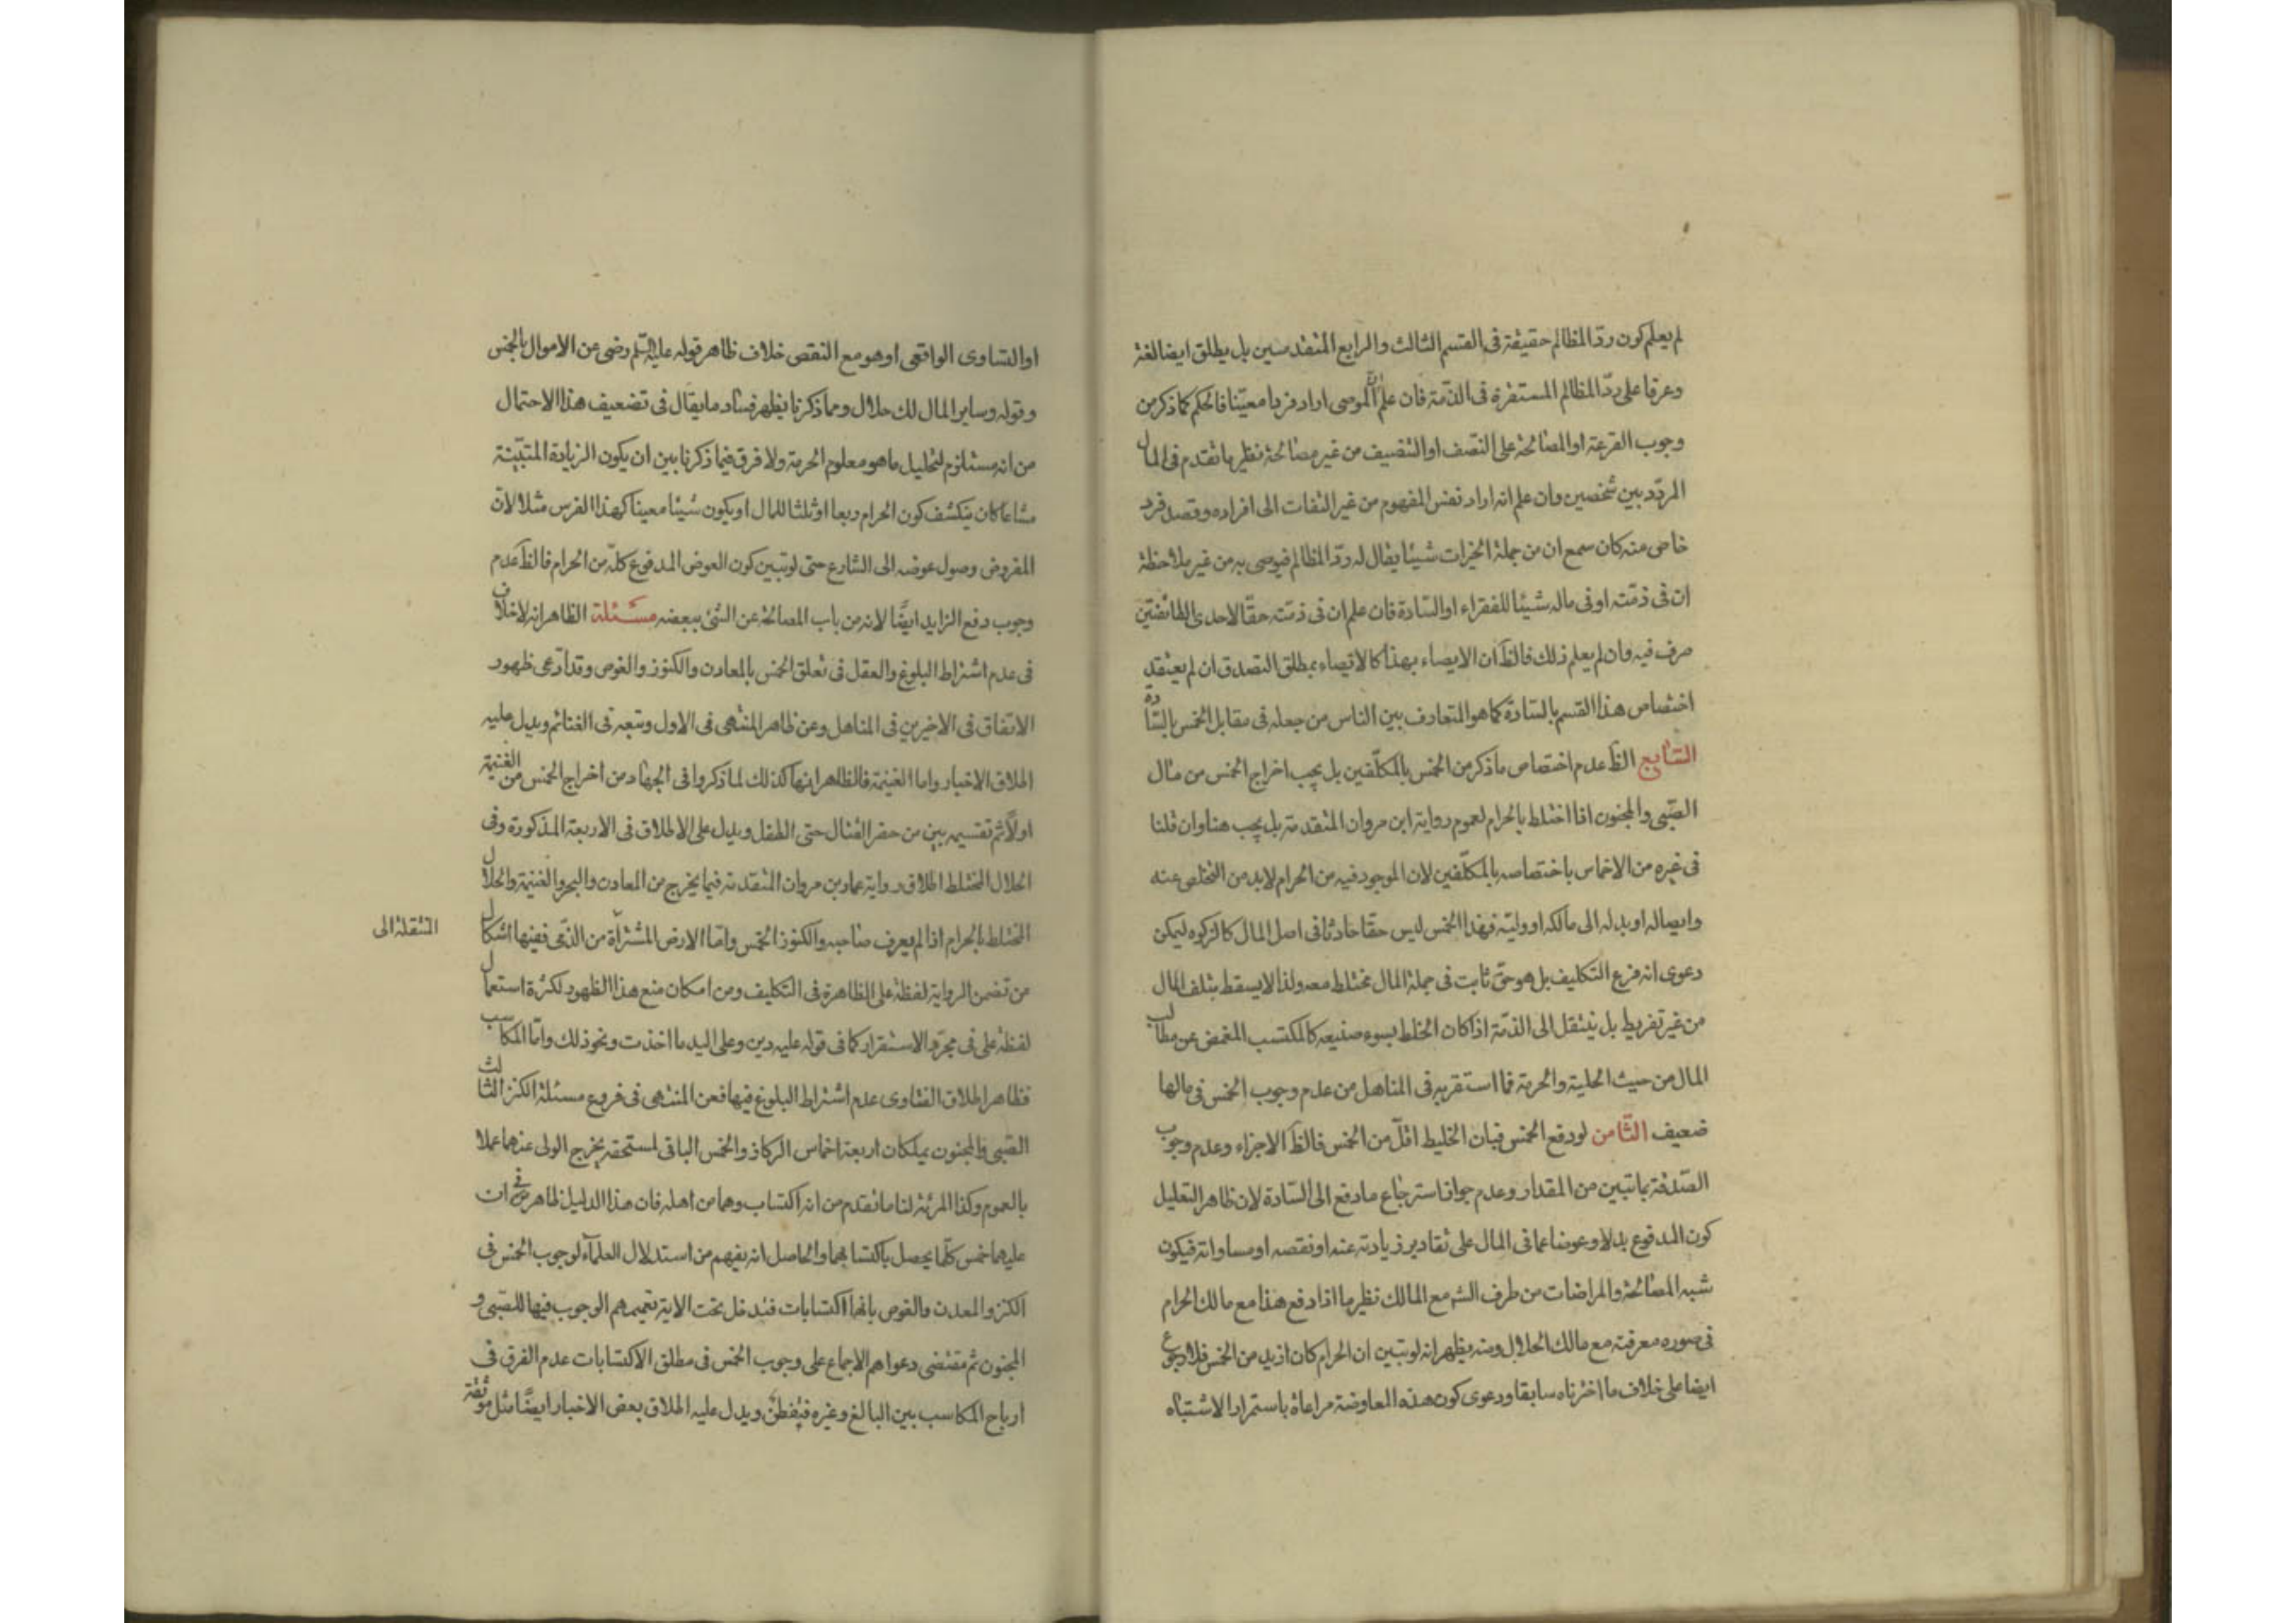 لم يعلم كون ردّ المظالم حقيقة فى القسم الثالث والرابع المتقدمين بل يطلق ايضا لغة
وعرفا على ردّ المظالم المستقرة فى الذمّة فان علم انّ الموصى اراد فردا معيّنا فالحكم كما ذكر من
وجوب القرعة او المصالحة على النصف او التنصيف من غير مصالحة نظير ما تقدم فى المال
المردّد بين شخصين وان علم انه اراد نفس المفهوم من غير التفات الى افراده وقصد فرد
خاص منه كان سمع ان من جملة الخيرات شيئا يقال له ردّ المظالم فيوصى به من غير ملاحظة
ان فى ذمّته او فى ماله شيئا للفقراء او السّادة فان علم ان فى ذمّته حقّا لاحدى الطائفتين
صرف فيه وان لم يعلم ذلك فالظ ان الايصاء بهذا كالايصاء بمطلق التصدق ان لم يعتقد
اختصاص هذا القسم بالسّادة كما هو المتعارف بين الناس من جعله فى مقابل الخمس بالسّادة
السّابع الظ عدم اختصاص ما ذكر من الخمس بالمكلّفين بل يجب اخراج الخمس من مال
الصّبى والمجنون اذا اختلط بالحرام لعموم رواية ابن مروان المتقدمة بل يجب هنا وان قلنا
فى غيره من الاخماس باختصاصه بالمكلّفين لان الموجود فيه من الحرام لابد من التخلص عنه
وايصاله او بدله الى مالكه او وليّه فهذا الخمس ليس حقّا حادثا فى اصل المال كالزكوه ليكن
دعوى انه فرع التكليف بل هو حقّ ثابت فى جملة المال مختلط معه ولذا لا يسقط بتلف المال
من غير تفريط بل ينتقل الى الذمّة اذا كان الخلط بسوء صنيعه كالمكتسب المغمض عن مطالب
المال من حيث الحلية والحرمة فما استقر به فى المناهل من عدم وجوب الخمس فى مالها
ضعيف الثّامن لو دفع الخمس فبان الخليط اقلّ من الخمس فالظ الاجزاء وعدم وجوب
الصّدقة بما تبين من المقدار وعدم جواز استرجاع ما دفع الى السّادة لان ظاهر التعليل
كون المدفوع بدلا وعوضا عما فى المال على تقادير زيادته عنه او نقصه او مساواته فيكون
شبه المصالحة والمراضات من طرف الشم مع المالك نظير ما اذا دفع هذا مع مالك الحرام
فى صوره معرفته مع مالك الحلال ومنه يظهر انه لو تبين ان الحرام كان ازيد من الخمس فلا رجوع
ايضا على خلاف ما اخترناه سابقا ودعوى كون هذه المعاوضة مراعاة باستمرار الاشتباه
او التساوى الواقعى او هو مع النقص خلاف ظاهر قوله عليه السّلم رضى عن الاموال بالخمس
وقوله وساير المال لك حلال ومما ذكرنا يظهر فساد ما يقال فى تضعيف هذا الاحتمال
من انه مستلزم لتحليل ما هو معلوم الحرمة ولا فرق فيما ذكرنا بين ان يكون الزيادة المتبيّنة
مشاعا كان ينكشف كون الحرام ربعا او ثلثا للمال او يكون شيئا معينا كهذا الفرس مثلا لانّ
المفروض وصول عوضه الى الشارع حتى لو تبين كون العوض المدفوع كلّه من الحرام فالظ عدم
وجوب دفع الزايد ايضًا لانه من باب المصالحة عن الشئ ببعضه مسئلة الظاهر انه لا خلاف
فى عدم اشتراط البلوغ والعقل فى تعلق الخمس بالمعادن والكنوز والغوص وقد ادّعى ظهور
الاتفاق فى الاخيرين فى المناهل وعن ظاهر المنتهى فى الاول وتبعه فى الغنائم ويدل عليه
اطلاق الاخبار واما الغنيمة فالظاهر انها كذلك لما ذكروا فى الجهاد من اخراج الخمس من الغنيمة
اولًا ثم تقسيمه بين من حضر القتال حتى الطفل ويدل على الاطلاق فى الاربعة المذكورة وفى
الحلال المختلط اطلاق رواية عمار بن مروان المتقدمة فيما يخرج من المعادن والبحر والغنيمة والحلال
المختلط بالحرام اذا لم يعرف صاحبه والكنوز الخمس وامّا الارض المشتراة من الذمّى ففيها اشكال
المنتقلة الى
من تضمن الرواية لفظة على الظاهرة فى التكليف ومن امكان منع هذا الظهور لكثرة استعمال
لفظة على فى مجرّد الاستقرار كما فى قوله عليه دين وعلى اليد ما اخذت ونحو ذلك وامّا المكاسب
فظاهر اطلاق الفتاوى عدم اشتراط البلوغ فيها فعن المنتهى فى فروع مسئلة الكنز الثالث
الصّبى والمجنون يملكان اربعة اخماس الركاز والخمس الباقى لمستحقه يخرج الولى عنهما عملا
بالعموم وكذا المرئة لنا ما تقدم من انه اكتساب وهما من اهله فان هذا الدليل ظاهر فى ان
عليهما خمس كلّما يحصل باكتسابهما والحاصل انه يفهم من استدلال العلمآء لوجوب الخمس فى
الكنز والمعدن والغوص بانها اكتسابات فتدخل تحت الاية تعميمهم الوجوب فيها للصّبى و
المجنون ثم مقتضى دعواهم الاجماع على وجوب الخمس فى مطلق الاكتسابات عدم الفرق فى
ارباح المكاسب بين البالغ وغيره فتفطن ويدل عليه اطلاق بعض الاخبار ايضًا مثل موثقة